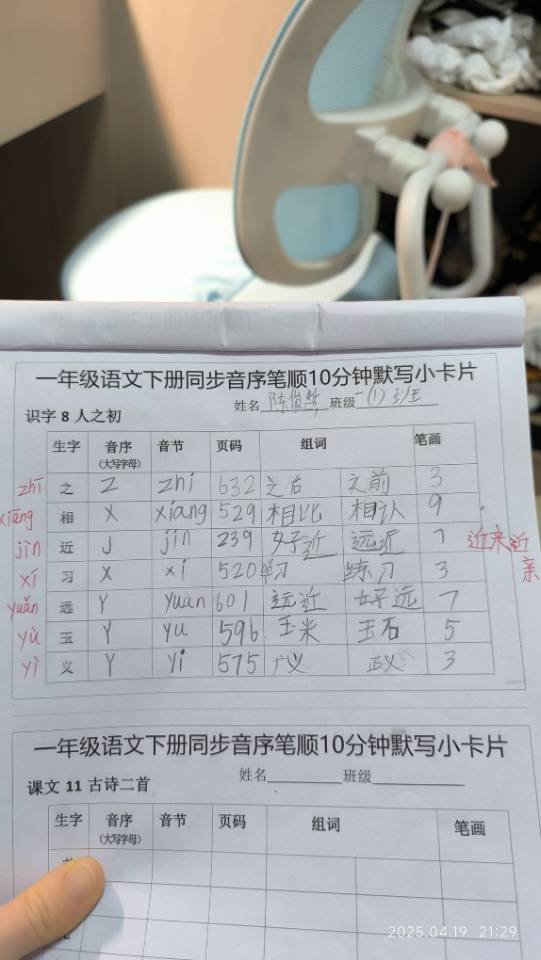 一年级语文下册同步音序笔顺10分钟默写小卡片
识字 8 人之初 姓名 陈俊哲 班级 一(1)班
生字 音序 音节 页码 组词 笔画
(大写字母)
zhī 之 Z zhi 632 之后 之前 3
xiāng 相 X xiang 529 相比 相认 9
jìn 近 J jin 239 好近 远近 7 近来 近
亲
xí 习 X xi 520 学习 练习 3
yuǎn 远 Y yuan 601 远近 好远 7
yù 玉 Y yu 596 玉米 玉石 5
yì 义 Y yi 575 广义 正义 3
一年级语文下册同步音序笔顺10分钟默写小卡片
课文 11 古诗二首 姓名 班级
生字 音序 音节 页码 组词 笔画
(大写字母)
2025.04.19 21:29